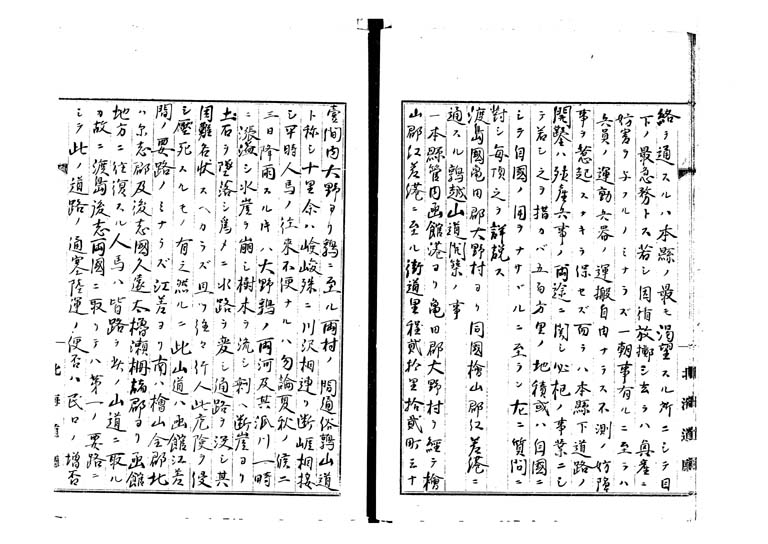 絡ヲ通スルハ本縣ノ最モ渇望スル所ニシテ目
下ノ最急務トス若シ因循放擲シ去ラハ真ニ
妨害ヲ与フルノミナラス一朝事有ルニ至ラハ
兵員ノ運動兵器ノ運搬自由ナラス不測ノ妨障
事ヲ惹起スナキヲ保セズ而ラハ本縣下道路ノ
開鑿ハ殖産兵事ノ両途ニ関シ必杞ノ事業ニシ
テ若シ之ヲ措カバ五百方里ノ地積或ハ自國ニ
シテ自國ノ用ヲナサヾルニ至ラン左ニ質問ニ
對シ毎項之ヲ詳説ス
渡島國亀田郡大野村ヨリ同國檜山郡江差港ニ
通スル鶉越山道開築ノ事
一本縣管内函館港ヨリ亀田郡大野村ヲ經テ檜
山郡江差港ニ至ル街道里程貳拾里拾貳町三十
臺間内大野ヨリ鶉ニ至ル両村ノ間通俗鶉山道
ト称シ十里余ハ嶮峻殊ニ川沢相連リ断崕相接
シ平時人馬ノ往来不便ナルハ勿論夏秋ノ候ニ
三日降雨スル片ハ大野鶉ノ両河及其派川一時
ニ漲溢シ水崖ヲ崩シ樹木ヲ流シ剰ヘ断崖ヨリ
土石ヲ墜落シ為メニ水路ヲ変シ通路ヲ没シ其
困難名状スヘカラズ且ツ往々行人此危険ヲ侵
シ壓死スルモノ有之然ルニ此山道ハ函館江差
間ノ要路ノミナラズ江差ヨリ南ハ檜山全郡北
ハ尓志郡及後志國久遠太櫓瀬棚郡ヨリ函館
地方ニ往復スル人馬ハ皆路ヲ此ノ山道ニ取ル
カ故ニ渡島後志両國ニ取リテハ第一ノ要路ニ
シテ此ノ道路ノ通塞陸運ノ便否ハ民口ノ増否